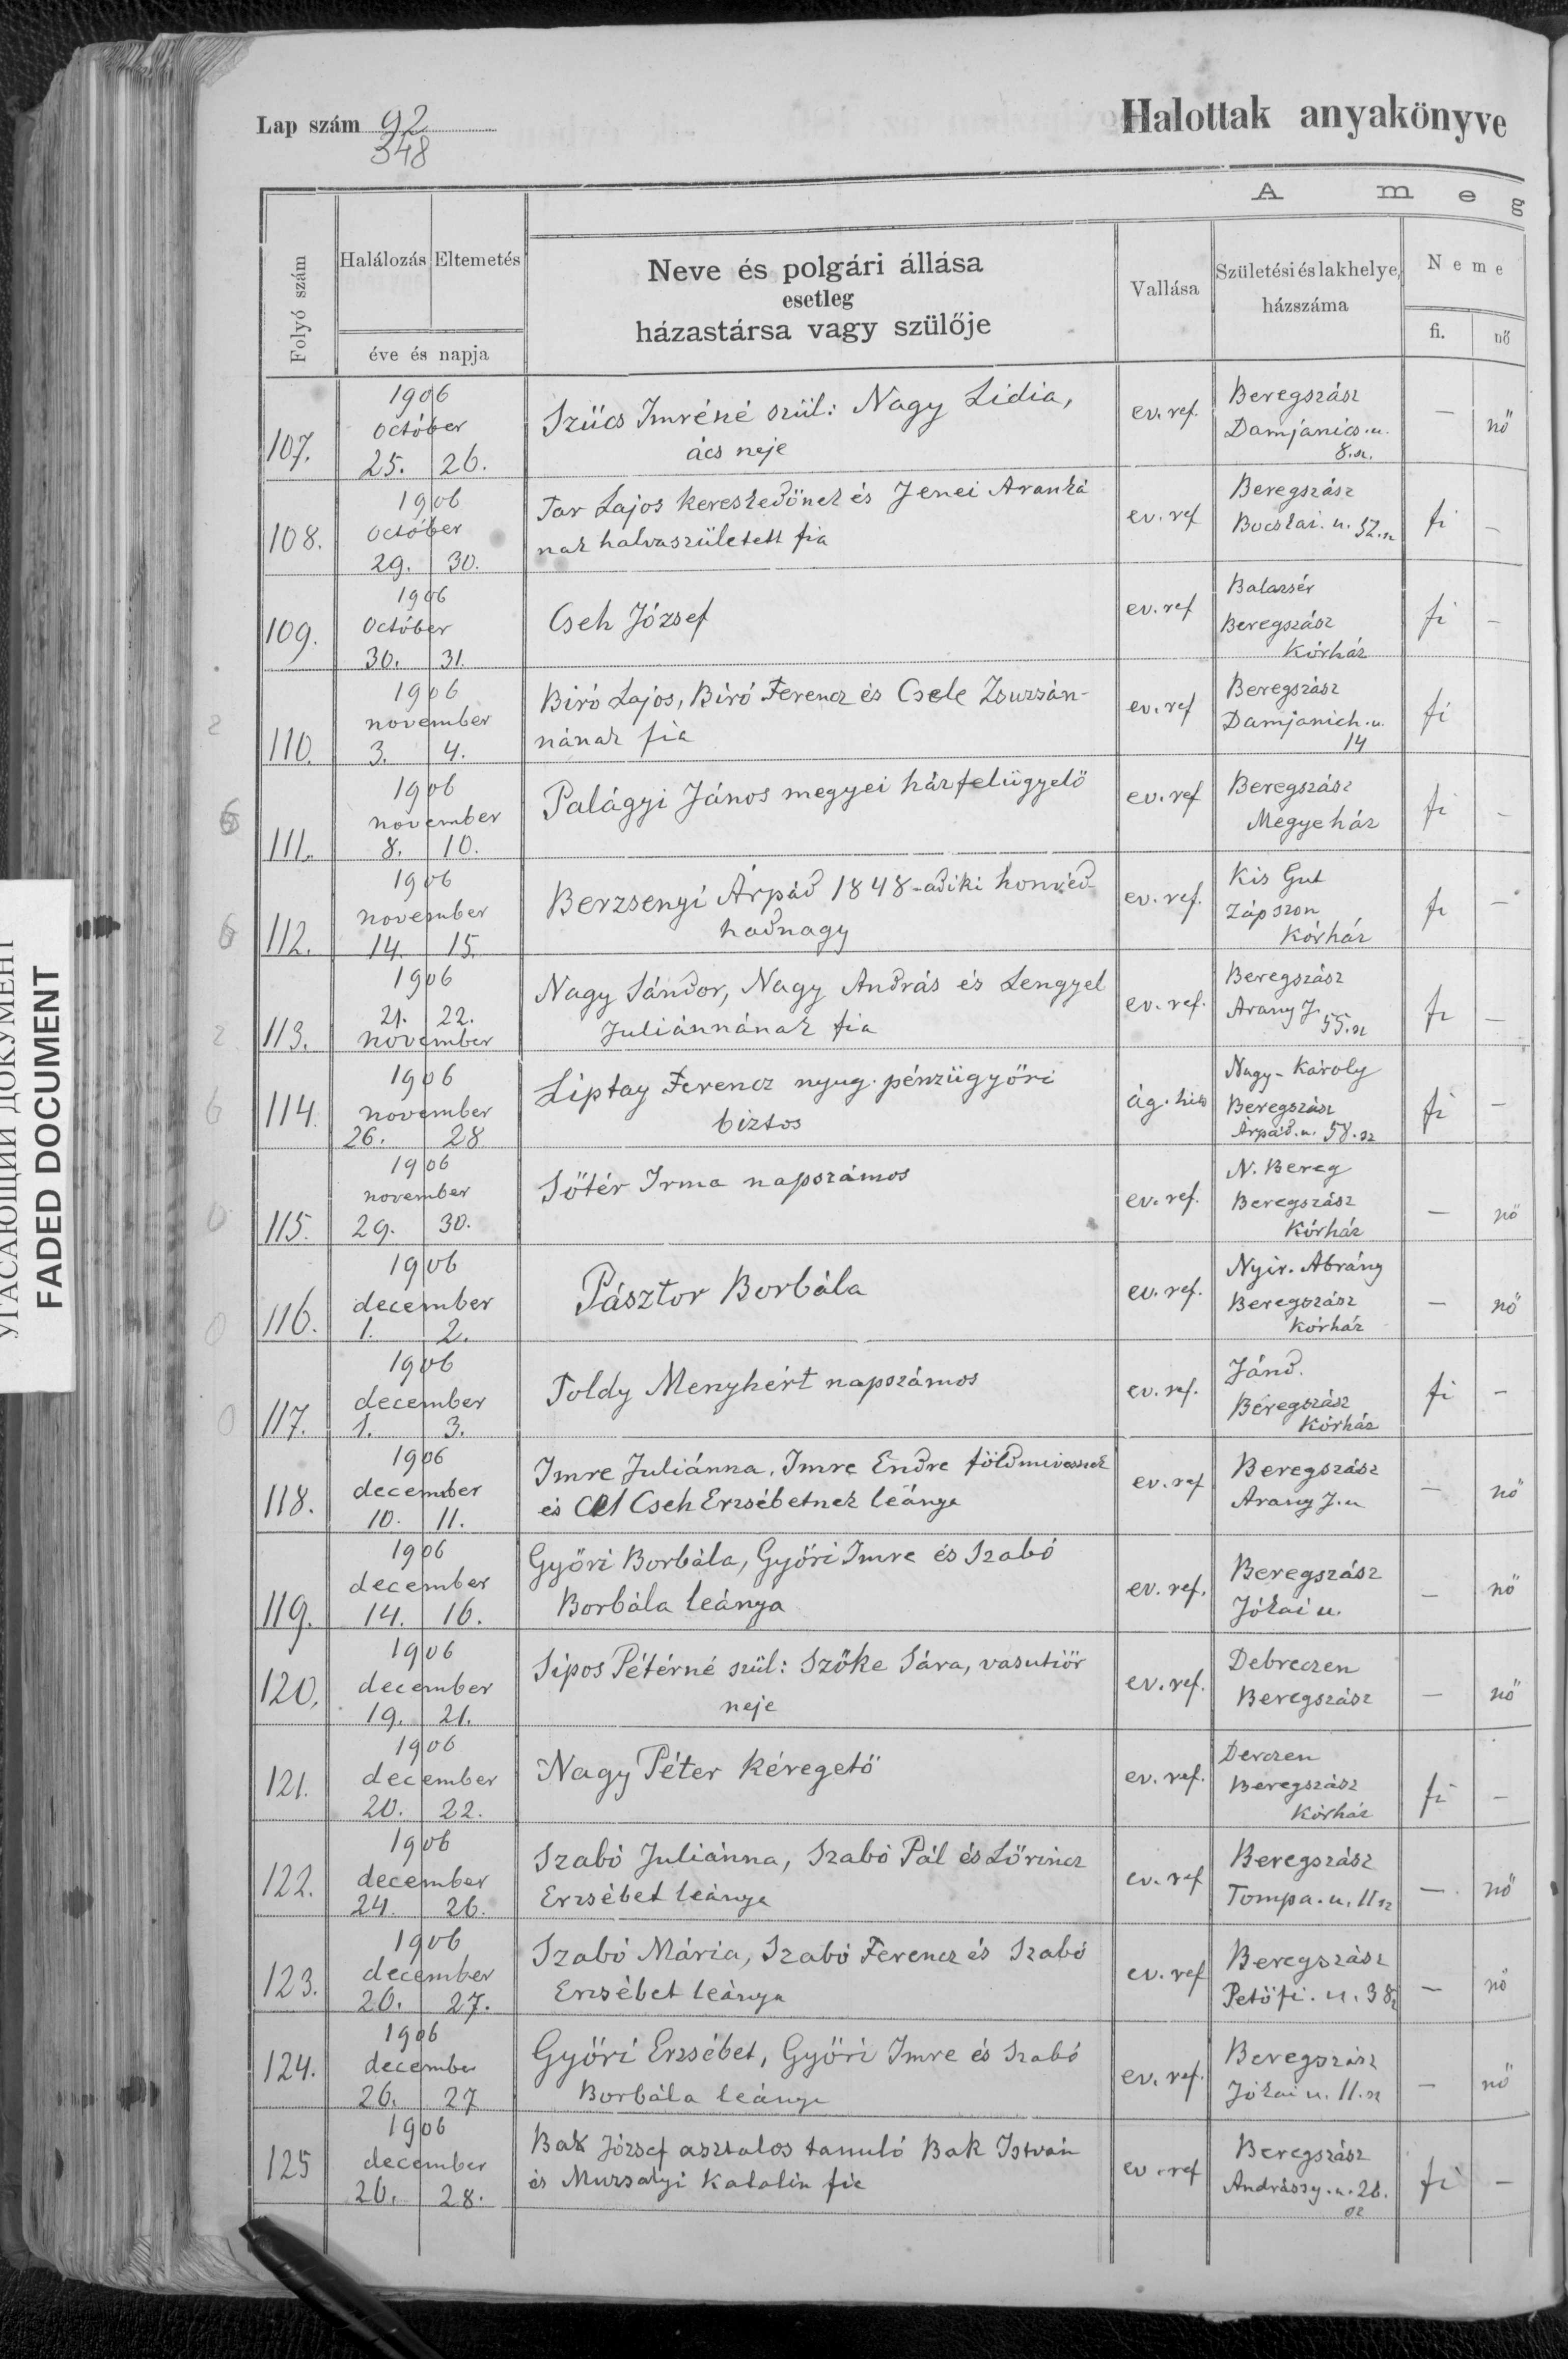 Lap szám 92
348
Halottak anyakönyve
A m e g
Folyó szám
Halálozás Eltemetés
éve és napja
Neve és polgári állása
esetleg
házastársa vagy szülője
Vallása
Születési és lakhelye,
házszáma
Neme
fi. nő
107.
1906
october
25. 26.
Szücs Imréné szül: Nagy Lidia,
ács neje
ev. ref.
Beregszász
Damjanics.u.
8.sz.
— nő
108.
1906
october
29. 30.
Tar Lajos kereskedőnek és Jenei Aranká
nak halvaszületett fia
ev. ref
Beregszász
Bocskai. u. 52.sz
fi —
109.
1906
October
30. 31.
Cseh József
ev. ref
Balazsér
Beregszász
Kórház
fi —
2
110.
1906
november
3. 4.
Biró Lajos, Biró Ferencz és Csele Zsuzsán-
nának fia
ev. ref
Beregszász
Damjanich.u.
14
fi
6
111.
1906
november
8. 10.
Palágyi János megyei házfelügyelő
ev. ref
Beregszász
Megyeház
fi —
6
112.
1906
november
14. 15.
Berzsenyi Árpád 1848-adiki honvéd-
hadnagy
ev. ref.
Kis Gut
Zápszon
Kórház
fi —
2
113.
1906
21. 22.
november
Nagy Sándor, Nagy András és Lengyel
Juliánnának fia
ev. ref.
Beregszász
Arany J.
55.sz
fi —
6
114.
1906
november
26. 28
Liptay Ferencz nyug. pénzügyőri
biztos
ág. hitv
Nagy-Károly
Beregszász
Árpád.u. 58.sz
fi —
0
115.
1906
november
29. 30.
Sőtér Irma napszámos
ev. ref.
N. Bereg
Beregszász
Kórház
— nő
0
116.
1906
december
1. 2.
Pásztor Borbála
ev. ref.
Nyir. Abrány
Beregszász
Kórház
— nő
0
117.
1906
december
1. 3.
Toldy Menyhért napszámos
ev. ref.
Jánd.
Beregszász
Kórház
fi —
118.
1906
december
10. 11.
Imre Juliánna, Imre Endre földmivesnek
és Cseh Erzsébetnek leánya
ev. ref
Beregszász
Arany J.u
— nő
119.
1906
december
14. 16.
Győri Borbála, Győri Imre és Szabó
Borbála leánya
ev. ref.
Beregszász
Jókai u.
— nő
120.
1906
december
19. 21.
Sipos Péterné szül: Szőke Sára, vasutiőr
neje
ev. ref.
Debreczen
Beregszász
— nő
121.
1906
december
20. 22.
Nagy Péter kéregető
ev. ref.
Derczen
Beregszász
Kórház
fi —
122.
1906
december
24. 26.
Szabó Juliánna, Szabó Pál és Lőrincz
Erzsébet leánya
ev. ref
Beregszász
Tompa.u. 11sz
— nő
123.
1906
december
26. 27.
Szabó Mária, Szabó Ferencz és Szabó
Erzsébet leánya
ev. ref
Beregszász
Petőfi. u. 38
— nő
124.
1906
december
26. 27
Győri Erzsébet, Győri Imre és Szabó
Borbála leánya
ev. ref.
Beregszász
Jókai u. 11.sz
— nő
125
1906
december
26. 28.
Bak József asztalos tanuló Bak István
és Muzsalyi Katalin fia
ev. ref
Beregszász
Andrássy.u. 26.
sz
fi —
УГАСАЮЩИЙ ДОКУМЕНТ
FADED DOCUMENT